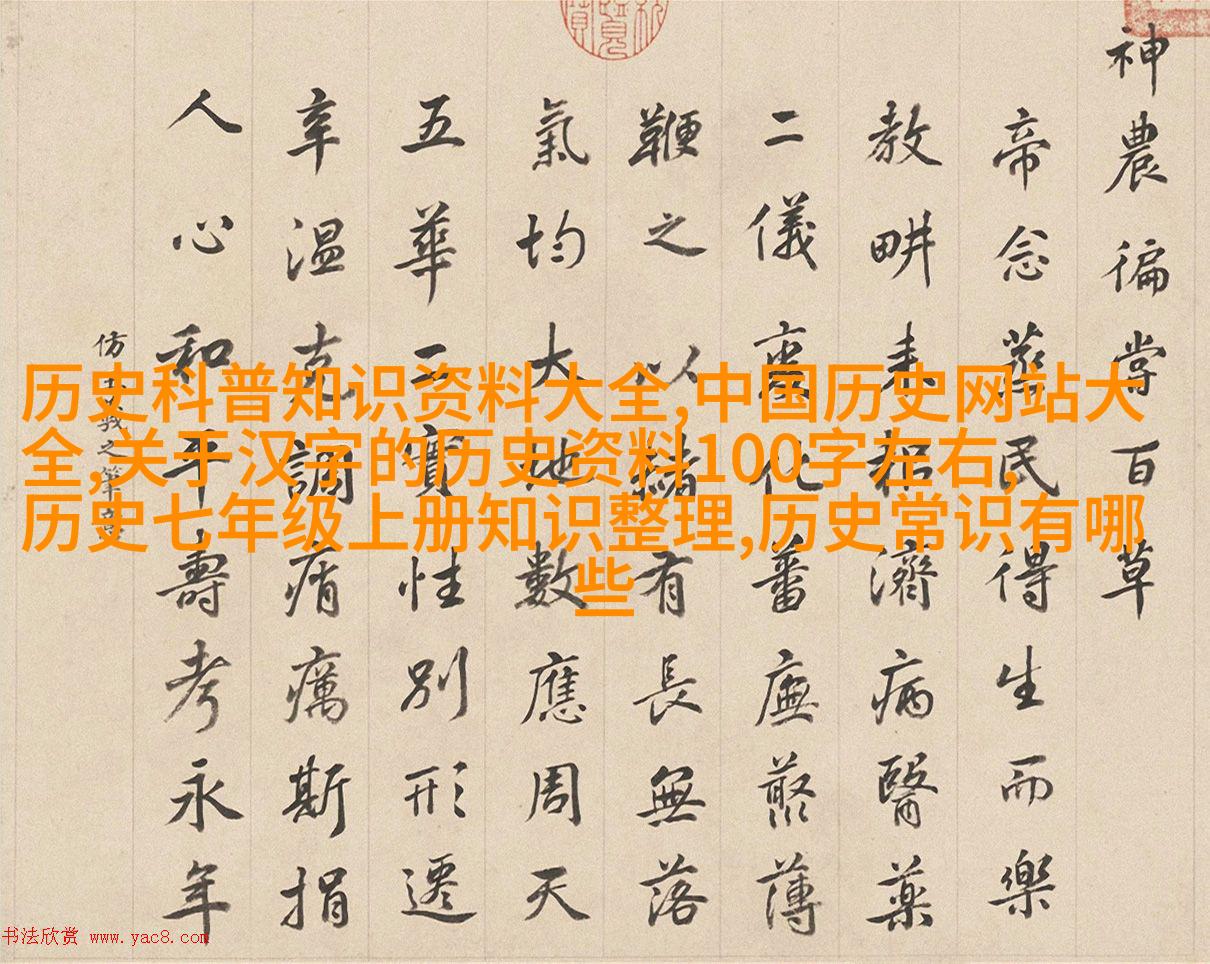 神農徧嘗百草
帝念蒸民得生而樂
教畊耒耜濟病醫藥
二儀化蕃廡薄
鞭之以赭有長無落
氣均大地數應周天
五華二實性別形遷
辛温克調痟癘斯捐
人心和平壽考永年
仿羲之筆意
历史科普知识资料大全,中国历史网站大
全,关于汉字的历史资料100字左右,
历史七年级上册知识整理,历史常识有哪
些
书法欣赏 www.yac8.com